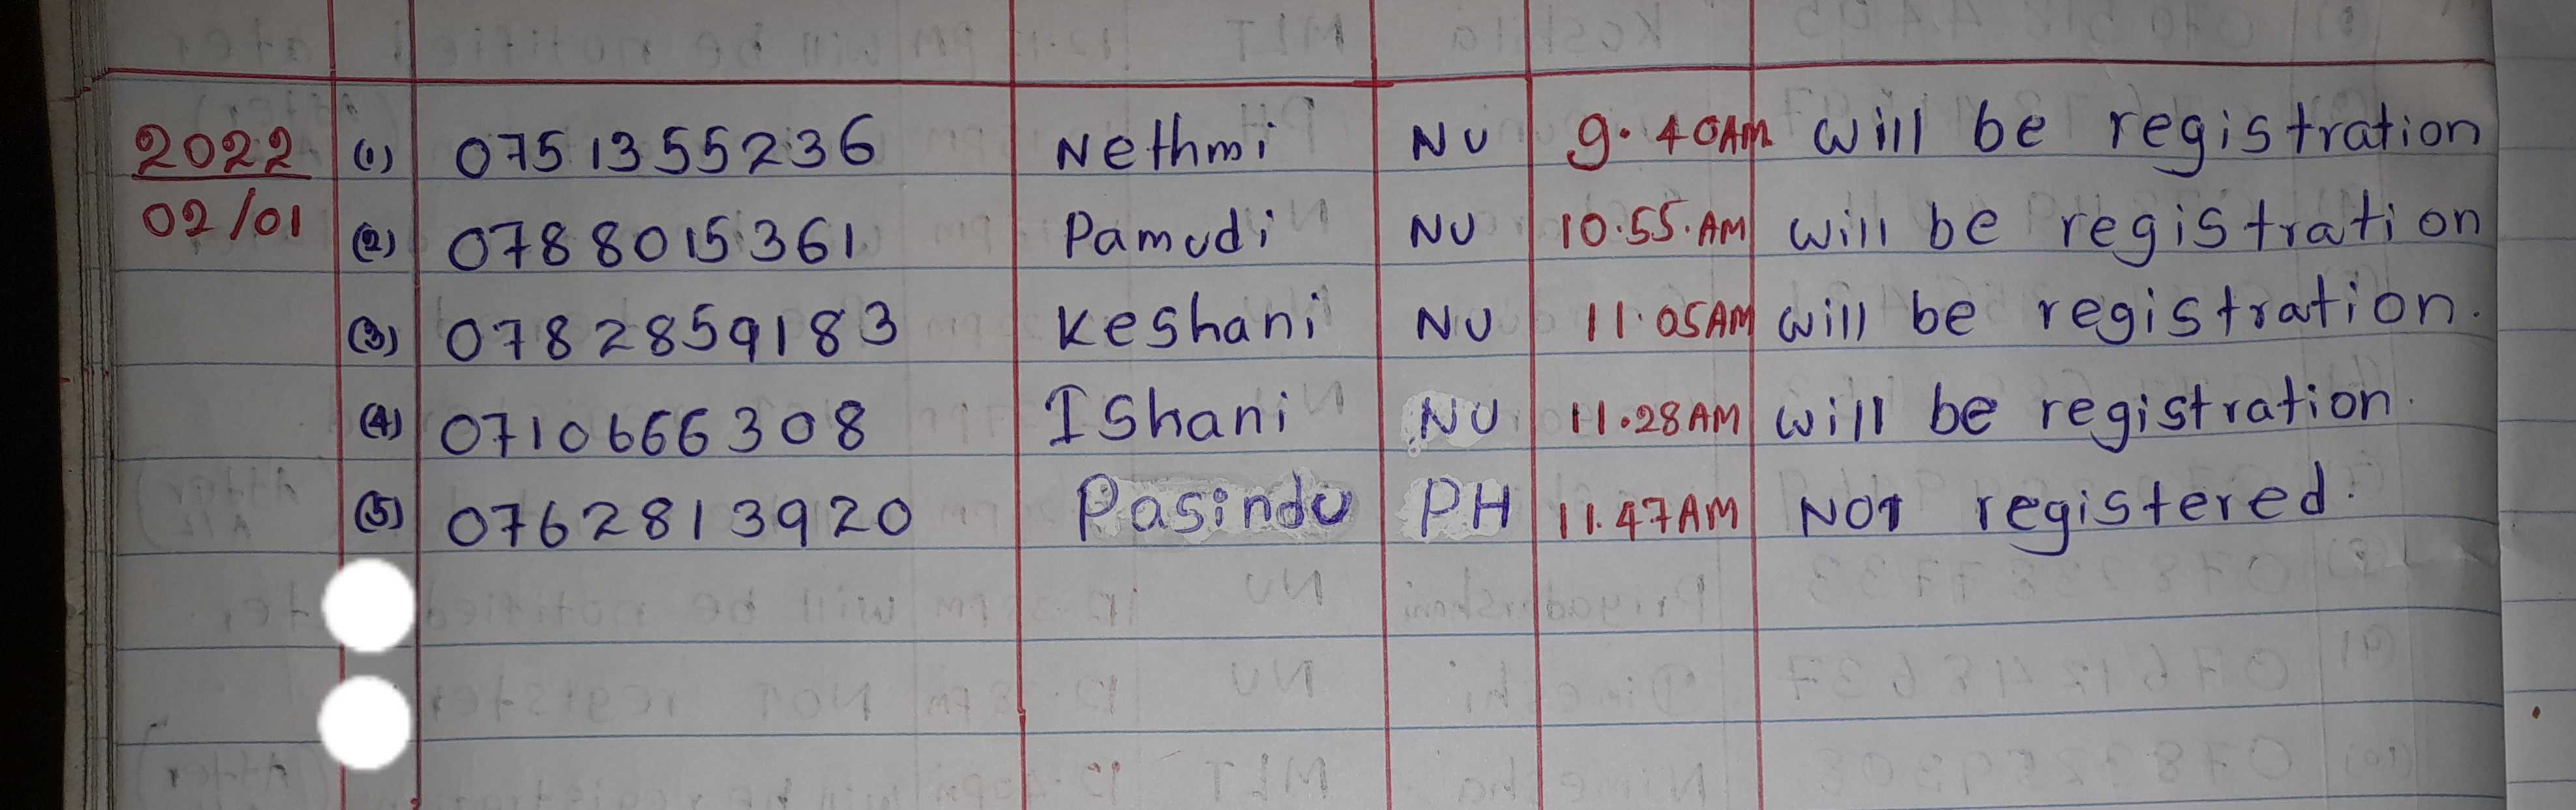 2022 (1) 0751355236 Nethmi NU 9.40AM will be registration
02/01 (2) 0788015361 Pamudi NU 10.55.AM will be registration
(3) 0782859183 Keshani NU 11.05AM will be registration.
(4) 0710666308 IShani NU 11.28AM will be registration.
(5) 0762813920 Pasindu PH 11.47AM NOT registered.